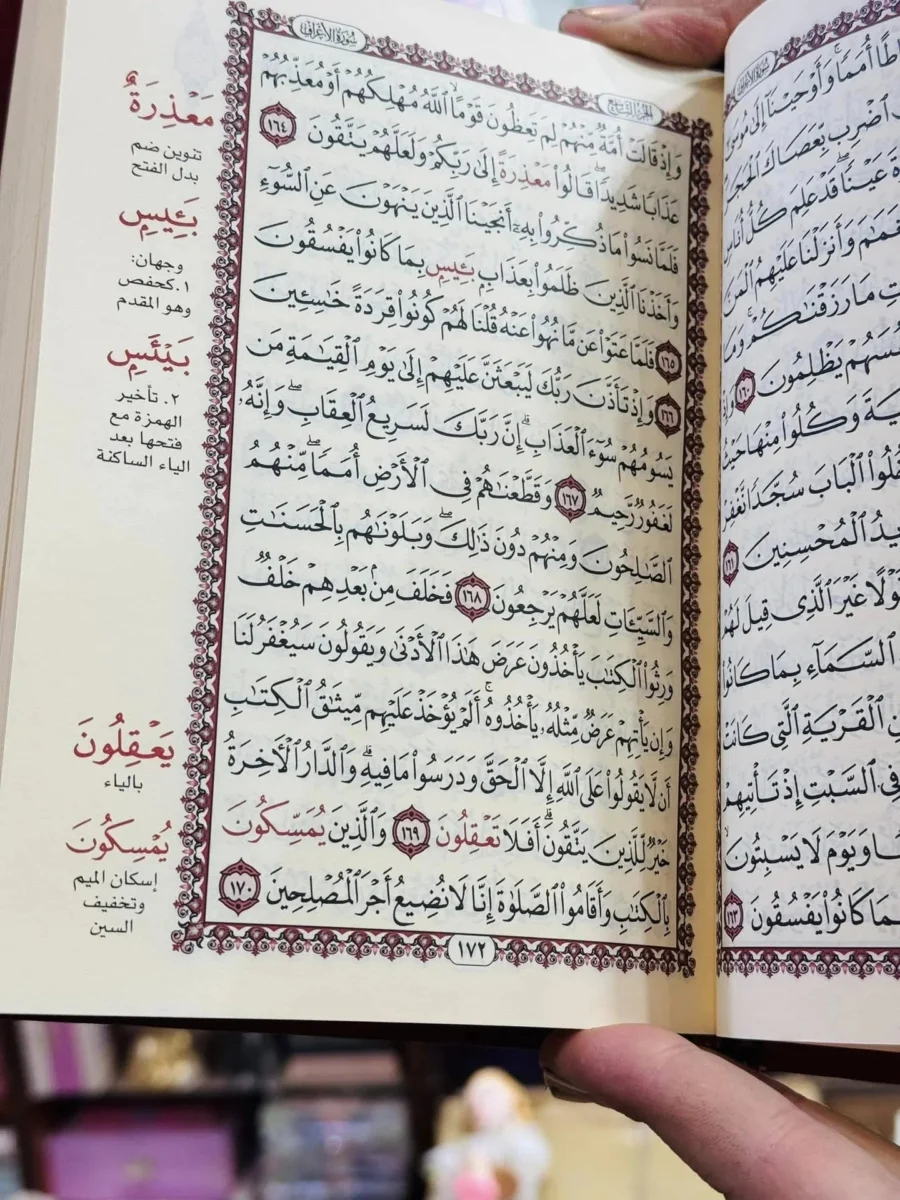 سُورَةُ الأَعْرَافِ
الجُزْءُ التَّاسِعُ
وَإِذْ قَالَتْ أُمَّةٌ مِّنْهُمْ لِمَ تَعِظُونَ قَوْمًا ٱللَّهُ مُهْلِكُهُمْ أَوْ مُعَذِّبُهُمْ
عَذَابًا شَدِيدًا قَالُوا۟ مَعْذِرَةً إِلَىٰ رَبِّكُمْ وَلَعَلَّهُمْ يَتَّقُونَ ١٦٤
فَلَمَّا نَسُوا۟ مَا ذُكِّرُوا۟ بِهِۦٓ أَنجَيْنَا ٱلَّذِينَ يَنْهَوْنَ عَنِ ٱلسُّوٓءِ
وَأَخَذْنَا ٱلَّذِينَ ظَلَمُوا۟ بِعَذَابٍۭ بَـِٔيسٍۭ بِمَا كَانُوا۟ يَفْسُقُونَ
١٦٥ فَلَمَّا عَتَوْا۟ عَن مَّا نُهُوا۟ عَنْهُ قُلْنَا لَهُمْ كُونُوا۟ قِرَدَةً خَٰسِـِٔينَ
١٦٦ وَإِذْ تَأَذَّنَ رَبُّكَ لَيَبْعَثَنَّ عَلَيْهِمْ إِلَىٰ يَوْمِ ٱلْقِيَٰمَةِ مَن
يَسُومُهُمْ سُوٓءَ ٱلْعَذَابِ ۗ إِنَّ رَبَّكَ لَسَرِيعُ ٱلْعِقَابِ ۖ وَإِنَّهُۥ
لَغَفُورٌ رَّحِيمٌ ١٦٧ وَقَطَّعْنَٰهُمْ فِى ٱلْأَرْضِ أُمَمًا ۖ مِّنْهُمُ
ٱلصَّٰلِحُونَ وَمِنْهُمْ دُونَ ذَٰلِكَ ۖ وَبَلَوْنَٰهُم بِٱلْحَسَنَٰتِ
وَٱلسَّيِّـَٔاتِ لَعَلَّهُمْ يَرْجِعُونَ ١٦٨ فَخَلَفَ مِنۢ بَعْدِهِمْ خَلْفٌ
وَرِثُوا۟ ٱلْكِتَٰبَ يَأْخُذُونَ عَرَضَ هَٰذَا ٱلْأَدْنَىٰ وَيَقُولُونَ سَيُغْفَرُ لَنَا
وَإِن يَأْتِهِمْ عَرَضٌ مِّثْلُهُۥ يَأْخُذُوهُ ۚ أَلَمْ يُؤْخَذْ عَلَيْهِم مِّيثَٰقُ ٱلْكِتَٰبِ
أَن لَّا يَقُولُوا۟ عَلَى ٱللَّهِ إِلَّا ٱلْحَقَّ وَدَرَسُوا۟ مَا فِيهِ ۗ وَٱلدَّارُ ٱلْـَٔاخِرَةُ
خَيْرٌ لِّلَّذِينَ يَتَّقُونَ ۗ أَفَلَا تَعْقِلُونَ ١٦٩ وَٱلَّذِينَ يُمَسِّكُونَ
بِٱلْكِتَٰبِ وَأَقَامُوا۟ ٱلصَّلَوٰةَ إِنَّا لَا نُضِيعُ أَجْرَ ٱلْمُصْلِحِينَ ١٧٠
١٧٢
مَعْذِرَةٌ
تنوين ضم
بدل الفتح
بَـِٔيسٍ
وجهان:
١. كحفص
وهو المقدم
بَيْـَٔسٍ
٢. تأخير
الهمزة مع
فتحها بعد
الياء الساكنة
يَعْقِلُونَ
بالياء
يُمْسِكُونَ
إسكان الميم
وتخفيف
السين
سُورَةُ الأَعْرَافِ
أُمَمًا ۚ وَأَوْحَيْنَآ إِلَىٰ مُوسَىٰٓ
ٱضْرِب بِّعَصَاكَ ٱلْحَجَرَ
عَيْنًا ۖ قَدْ عَلِمَ كُلُّ أُنَاسٍ
وَأَنزَلْنَا عَلَيْهِمُ ٱلْمَنَّ
مَا رَزَقْنَٰكُمْ ۚ وَمَا
يَظْلِمُونَ ١٦٠ وَإِذْ
وَكُلُوا۟ مِنْهَا حَيْثُ
ٱلْبَابَ سُجَّدًا نَّغْفِرْ
ٱلْمُحْسِنِينَ ١٦١
غَيْرَ ٱلَّذِى قِيلَ لَهُمْ
ٱلسَّمَآءِ بِمَا كَانُوا۟
ٱلْقَرْيَةِ ٱلَّتِى كَانَتْ
فِى ٱلسَّبْتِ إِذْ تَأْتِيهِمْ
وَيَوْمَ لَا يَسْبِتُونَ
كَانُوا۟ يَفْسُقُونَ ١٦٣